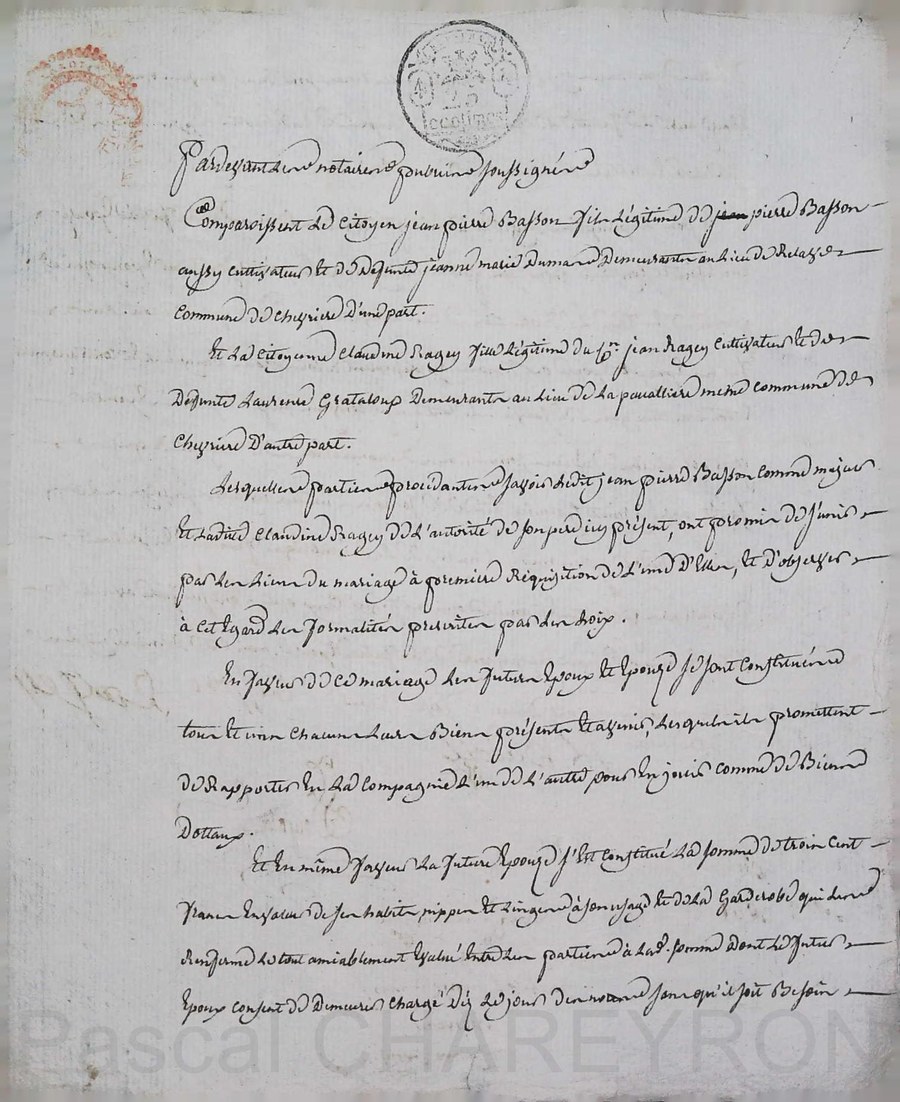 25
centimes
Pardevant les notaires publics soussignés
Comparoissent le Citoyen jean pierre Basson fils légitime de jean pierre Basson
aussy cultivateur et de defunte jeanne marie Dumas Demeurants au lieu de Relave
Commune de Chevriere D'une part.
Et La Citoyenne Claudine Ragey fille légitime du Cn jean Ragey Cultivateur et de
Defunte Laurence Grataloup Demeurants au lieu de La pacalliere meme commune de
Chevriere D'autre part.
Lesquelles parties procédantes savoir ledit jean pierre Basson Comme majeur
Et Ladite Claudine Ragey de L'autorité de son pere icy présent, ont promis de s'unir
par les liens du mariage à premiere Réquisition de L'une D'Elles, Et d'observer
à Cet Egard les formalités prescrites par les Loix.
En faveur de Ce mariage les futurs Epoux Et Epouze se sont Constitués
tous Et uns Chacuns leurs Biens présents Et avenir, lesquels ils promettent
de Rapporter En La Compagnie L'un de L'autre pour En jouir comme de Biens
Dottaux.
Et En même faveur La future Epouze s'Est Constitué La somme de trois Cent
francs En valeur de ses habits, nippes Et Linges à son usage Et de La Garderobe qui les
Renferme le tout amiablement Evalué Entre les parties à Lade. somme dont le futur
Epoux Consent de Demeurer Chargé Dez le jour des noces sans qu'il soit Besoin
Pascal CHAREYRON